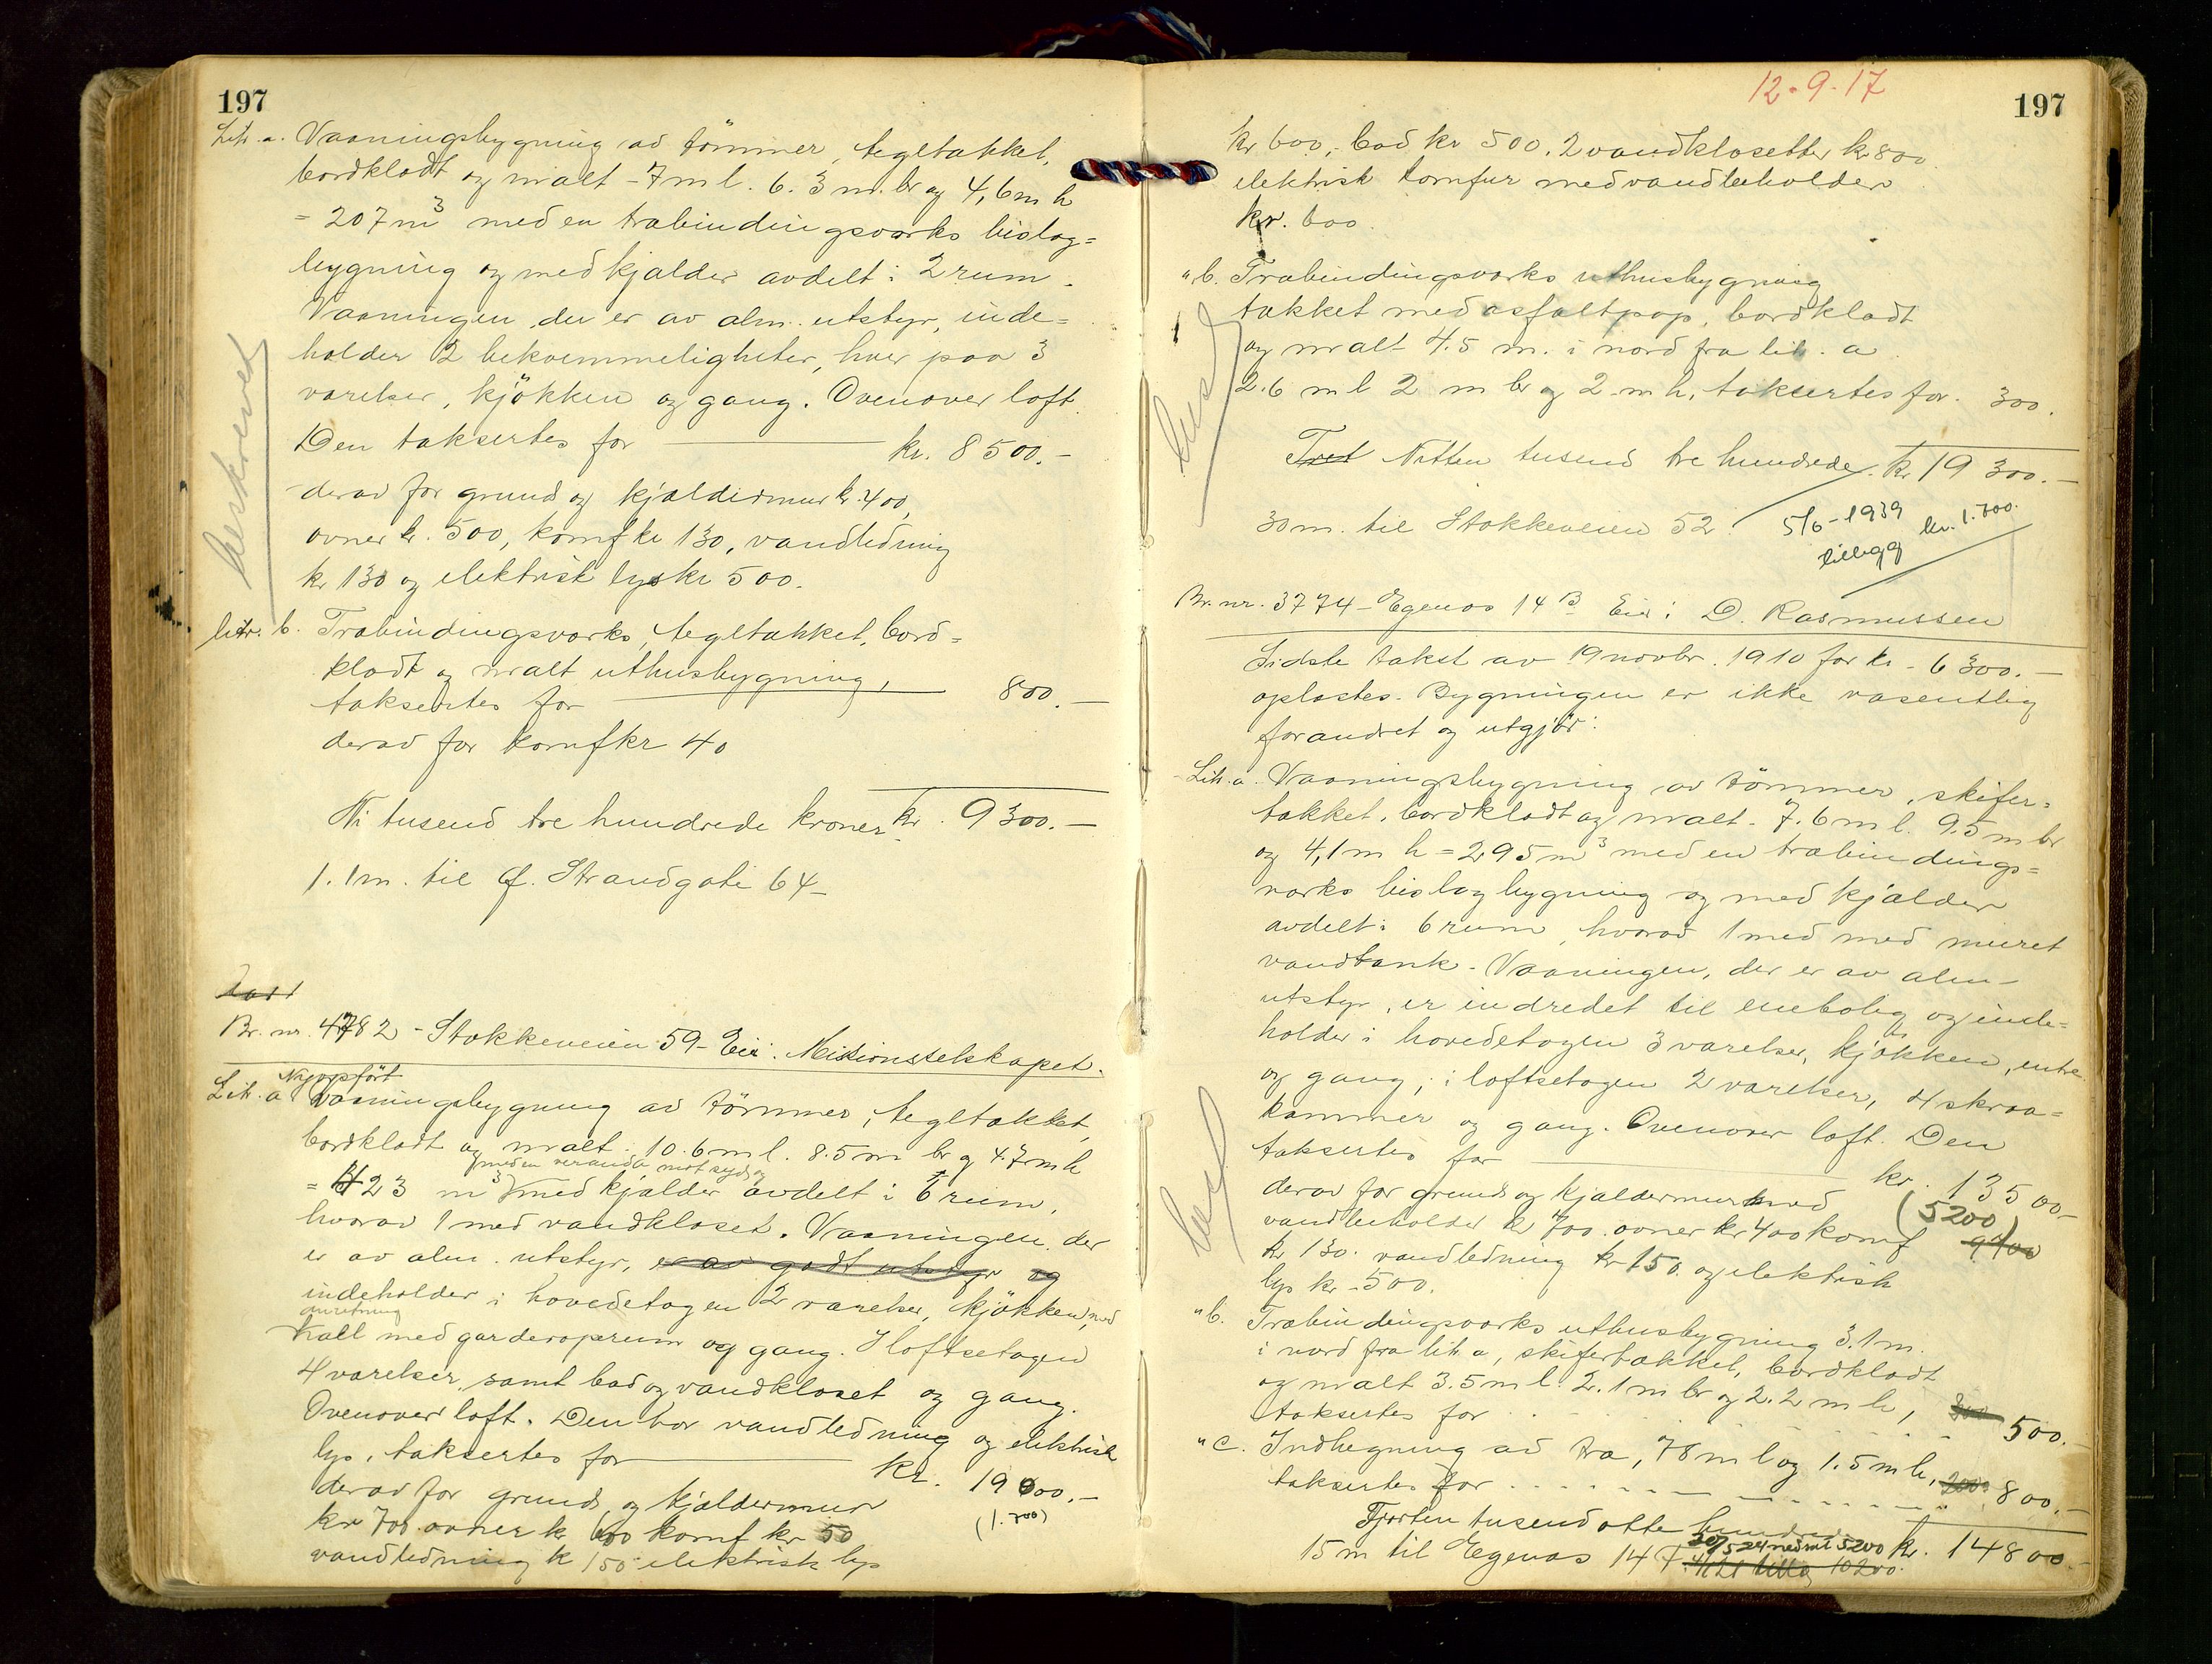 197
Litr. a. Vaaningsbygning av tömmer, tegltækket,
bordklædt og malt - 7 m l. 6.3 m. br og 4,6 m h
= 207 m³ med en træbindingsværks bislag=
bygning og med kjælder avdelt i 2 rum.
Vaaningen, der er av alm. utstyr, inde=
holder 2 bekvemmeligheter, hver paa 3
værelser, kjökken og gang. Ovenover loft.
Den takseres for kr. 8500.-
derav for grund og kjældermur kr. 400,
ovner kr. 500, komf kr 130, vandledning
kr 130 og elektrisk lys kr 500.
beskrevet
litr. b. Træbindingsværks, tegltækket, bord=
klædt og malt uthusbygning,
takseres for 800.-
derav for komf kr 40
Ni tusend tre hundrede kroner kr. 9300.-
1.1 m. til Ø. Strandgate 64-
Br. nr. 4782 - Stokkeveien 59 - Eier: Missionsselskapet.
Nyopfört
Litr. a Vaaningsbygning av tömmer, tegltækket,
bordklædt og malt. 10.6 m l. 8.5 m br og 4.7 m h
med en veranda mot syd og
= 423 m³ med kjælder avdelt i 6 rum,
hvorav 1 med vandkloset. Vaaningen, der
er av alm. utstyr, er av godt utstyr og
indeholder i hovedetagen 2 værelser, kjökken, med
anretning
hall med garderoperum og gang. I loftsetagen
4 værelser, samt bad og vandkloset og gang.
Ovenover loft. Den har vandledning og elektrisk
lys, takseres for kr. 19000.-
(1.700)
derav for grund og kjældermur
kr 700 ovner kr 600 komf kr 50
vandledning kr 150 elektrisk lys
12-9-17
197
kr 600, bad kr 500, 2 vandklosetter kr 800
elektrisk komfur med vandbeholder
kr. 600.
" b. Træbindingsværks uthusbygning
tækket med asfaltpap, bordklædt
og malt 4.5 m. i nord fra litr. a
2.6 m l 2 m br og 2 m h, takseres for. 300.
Tret Nitten tusend tre hundrede kr 19300.-
30 m. til Stokkeveien 52
5/6-1939 kr. 1.700.
tillegg
Br. nr. 3774 - Egenæs 14 B Eier: D. Rasmussen
Sidste takst av 19 novbr. 1910 for kr - 6300.-
oplæstes. Bygningen er ikke væsentlig
forandret og utgjör:
Litr. a. Vaaningsbygning av tömmer, skifer=
tækket, bordklædt og malt - 7.6 m l. 9.5 m br
og 4,1 m h = 295 m³ med en træbindings=
værks bislagbygning og med kjælder
avdelt i 6 rum, hvorav 1 med med muret
vandtank. Vaaningen, der er av alm-
utstyr, er indredet til enebolig og inde=
holder i hovedetagen 3 værelser, kjökken, entre
og gang, i loftsetagen 2 værelser, 4 skraa=
kammer og gang. Ovenover loft. Den
takseres for kr. 13500-
(5200)
9700
derav for grund og kjældermur med
vandbeholder kr 700. ovner kr 400 komf
kr 130. vandledning kr 150 og elektrisk
lys kr - 500.
" b. Træbindingsværks uthusbygning 3.1 m.
i nord fra litr. a, skifertækket, bordklædt
og malt 3.5 m l. 2.1 m br og 2.2 m h,
takseres for 300 500.-
" c. Indhegning av træ, 78 m l og 1.5 m h,
takseres for 200 800.-
Fjorten tusend otte hundrede kr. 14800-
15 m til Egenæs 14